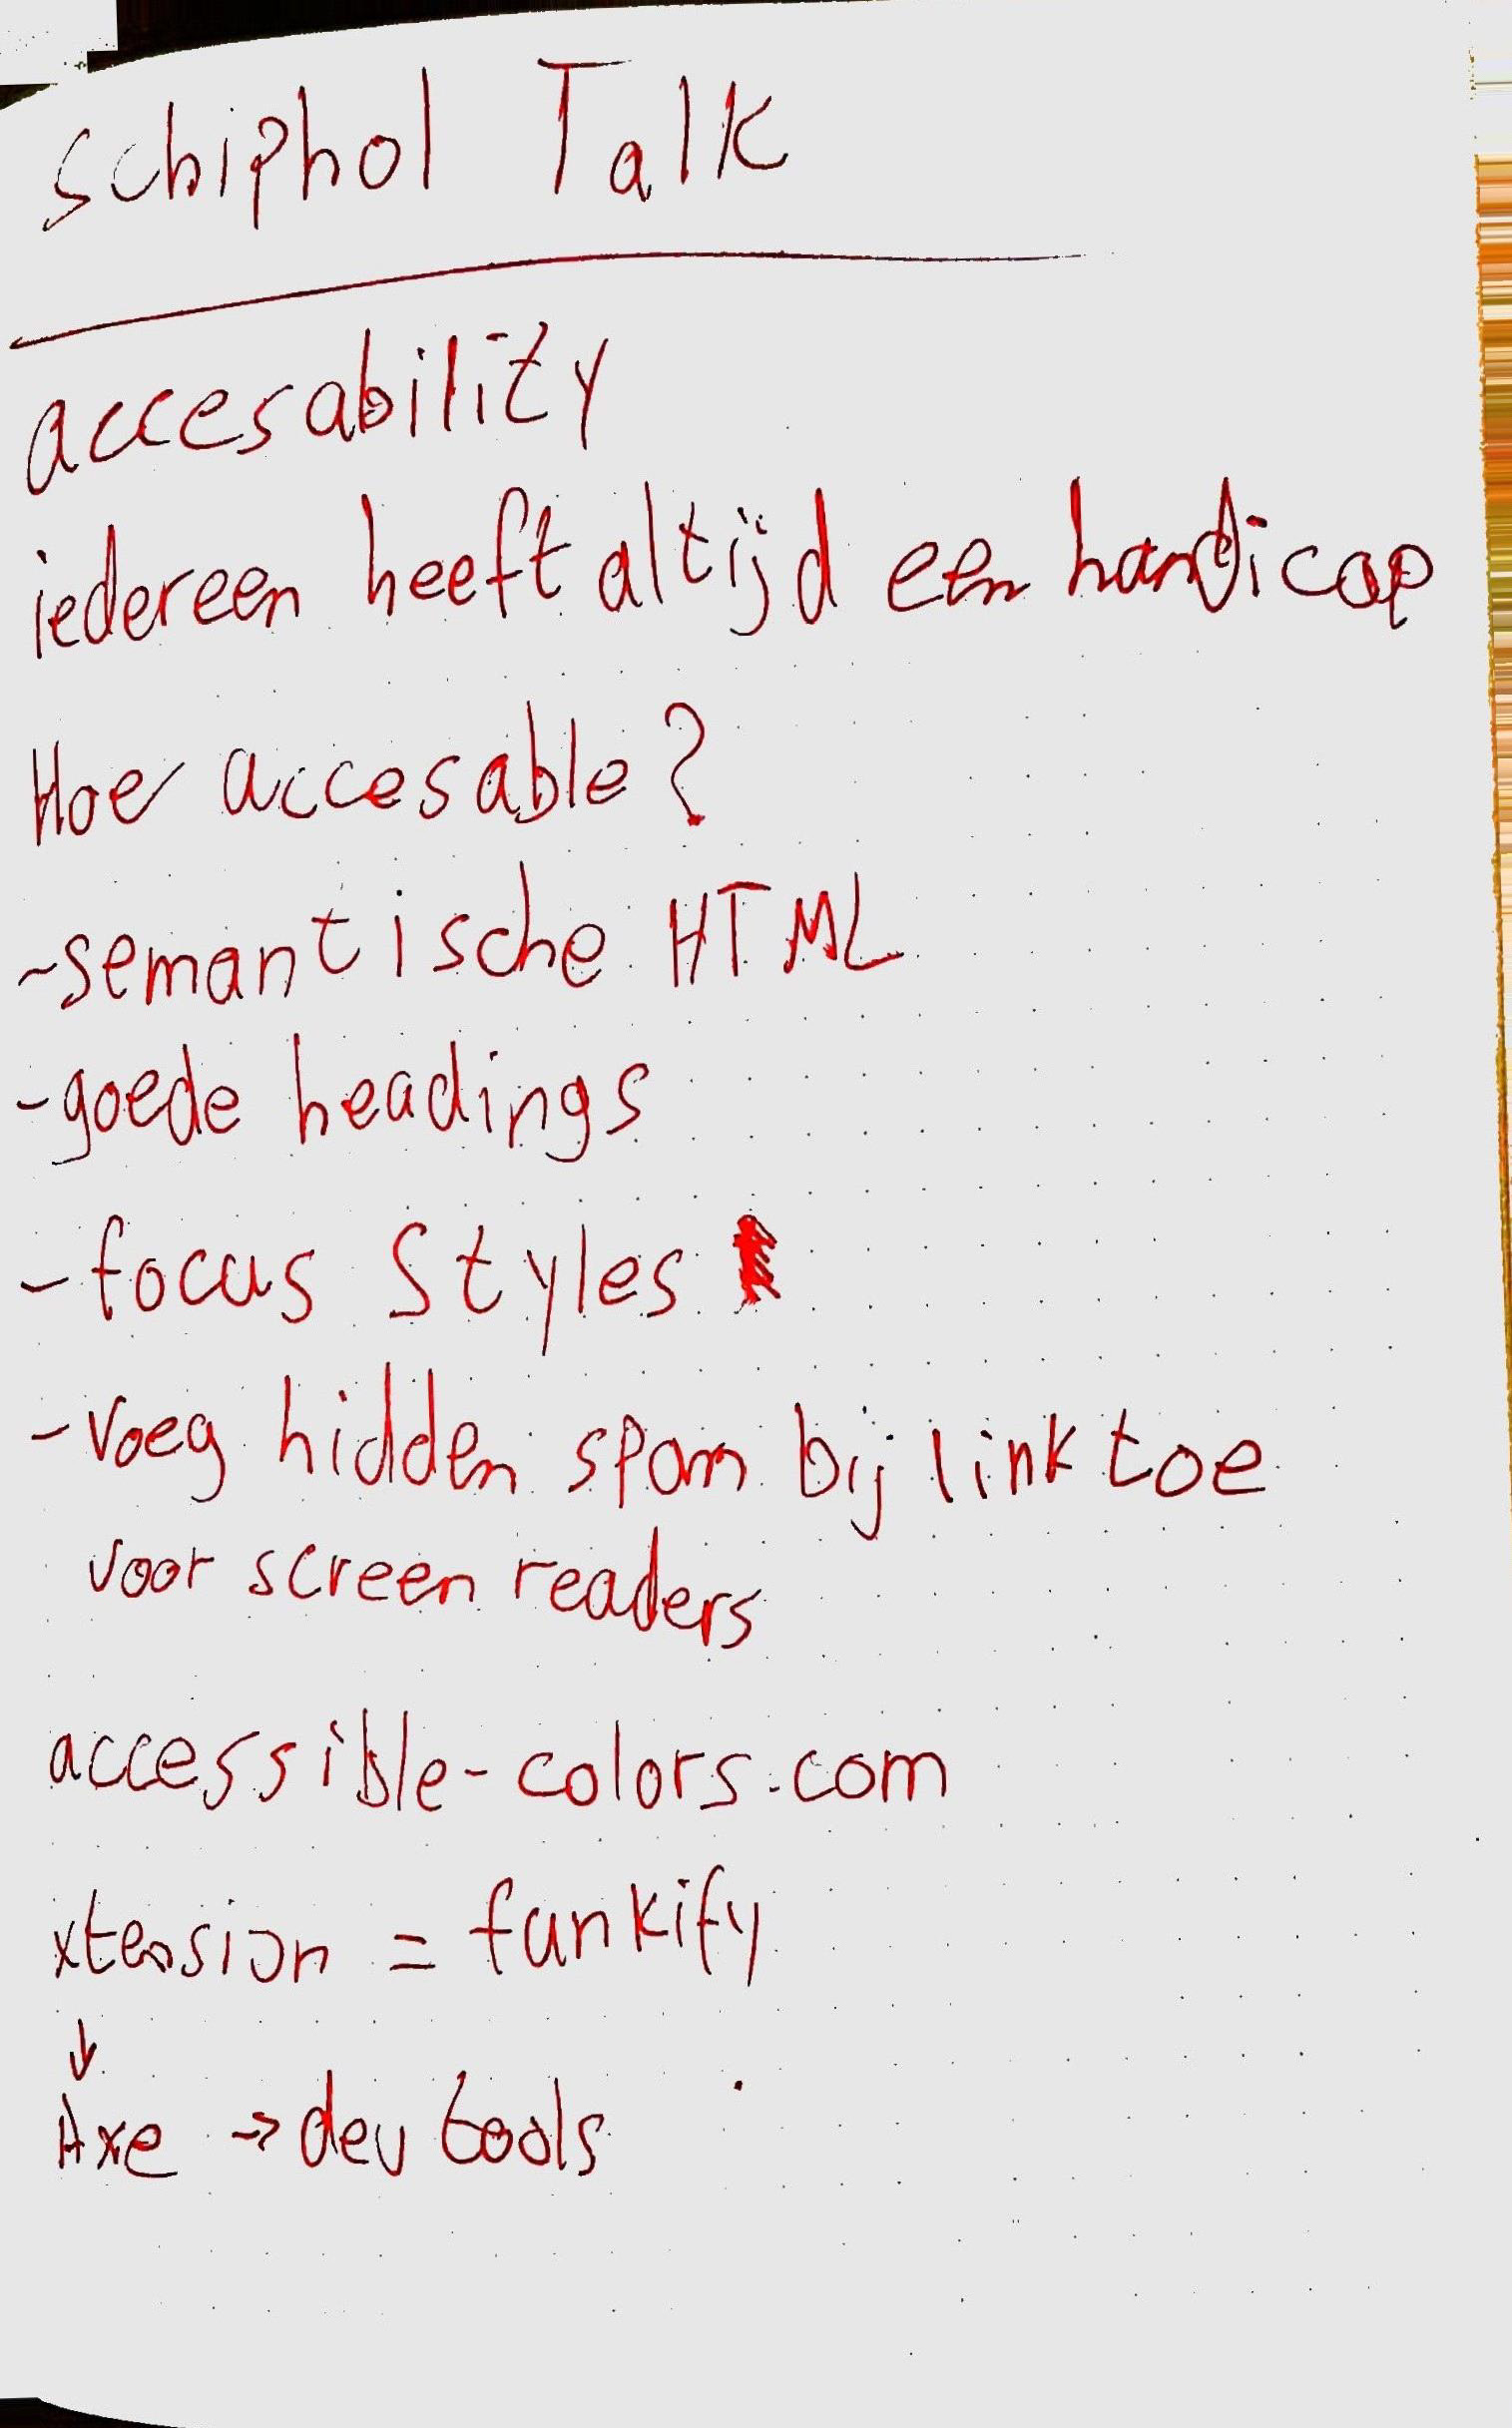 Schiphol Talk
accesability
iedereen heeft altijd een handicap
Hoe accesable?
~semantische HTML
-goede headings
-focus Styles
-voeg hidden span bij link toe
voor screen readers
accessible-colors.com
xtension = funkify
↓
Axe → dev tools